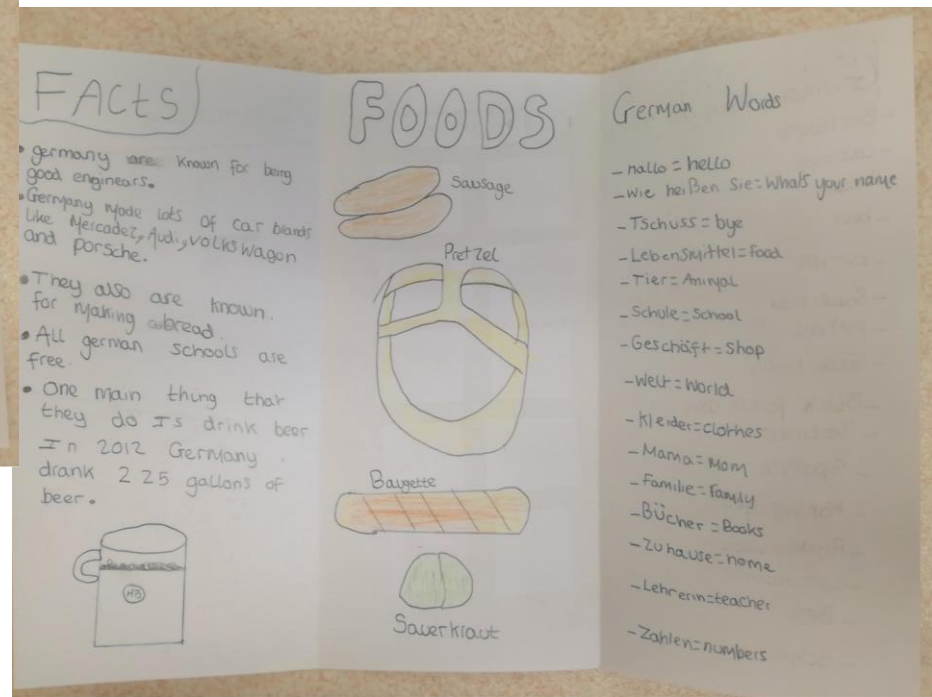 FACts
• germany are known for being
good enginears.
• Germany made lots of car brands
like Mercadez, Audi, VOLKSWagon
and porsche.
• They also are known
for making bread
• All german schools are
free.
• One main thing that
they do Is drink beer
In 2012 Germany
drank 225 gallons of
beer.
HB
FOODS
Sausage
Pretzel
Baugette
Sauerkraut
German Words
- hallo = hello
- wie heißen Sie = Whats your name
- Tschuss = bye
- Lebensmittel = food
- Tier = Animal
- Schule = School
- Geschäft = Shop
- Welt = World
- Kleider = clothes
- Mama = Mom
- Familie = family
- Bücher = Books
- Zuhause = home
- Lehrerin = teacher
- Zahlen = numbers